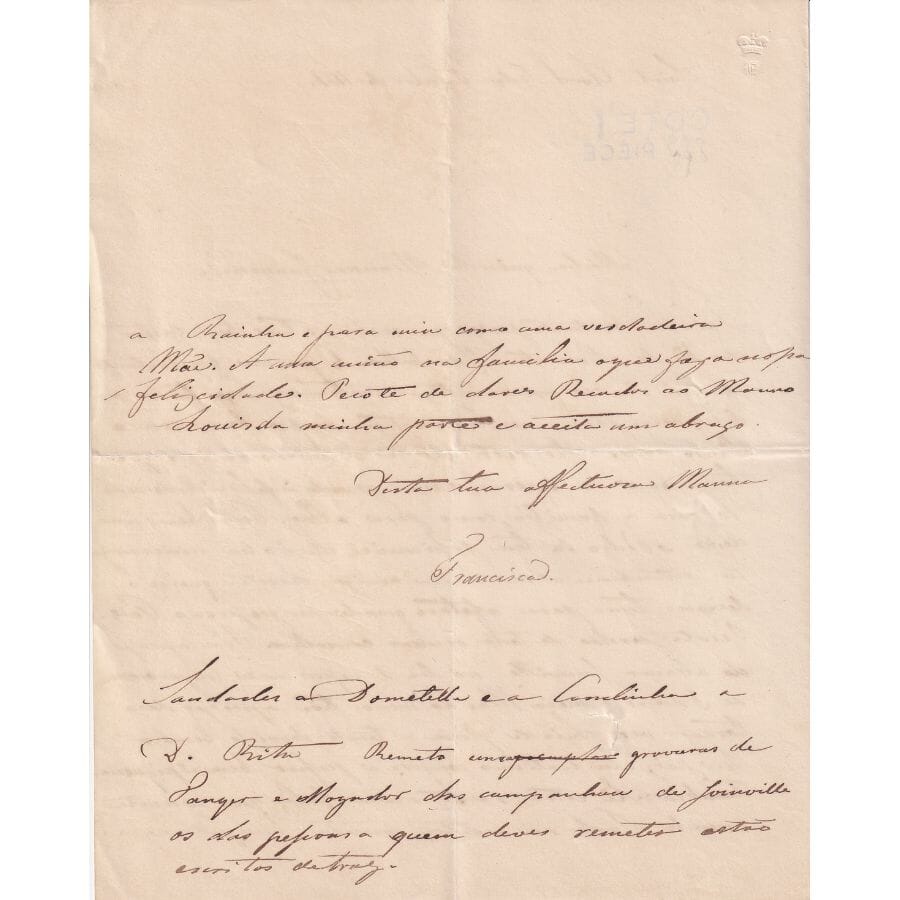 a Rainha e para mim como uma verdadeira
Mãe. A una na familia o que faça nossa
felizcidade. Pecote de dares Recados ao Manno
Louis da minha parte e aceita um abraço.
Desta tua affectuosa Manna
Francisca.
Saudades a Dometilla e a a
D. Rita Remeto gravuras de
Tanger e Mogador das campanhas de Joinville
os das pessoas a quem deves remeter estão
escritos detraz.